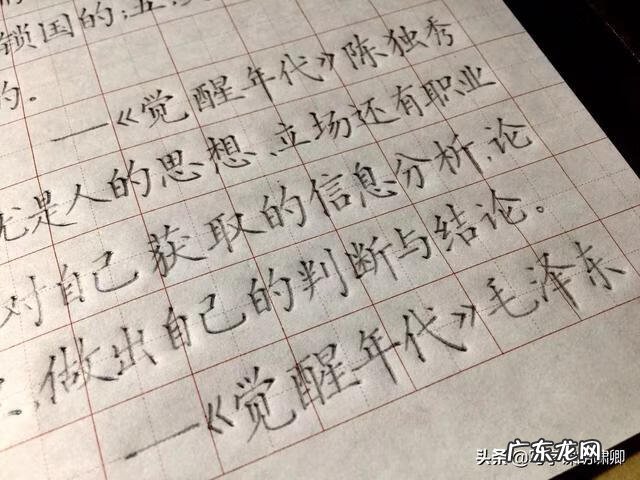 锁国的;五、
的.
——《觉醒年代》陈独秀
是人的思想、立场还有职业
对自己获取的信息分析、论
、做出自己的判断与结论。
——《觉醒年代》毛泽东
头条
广东龙网